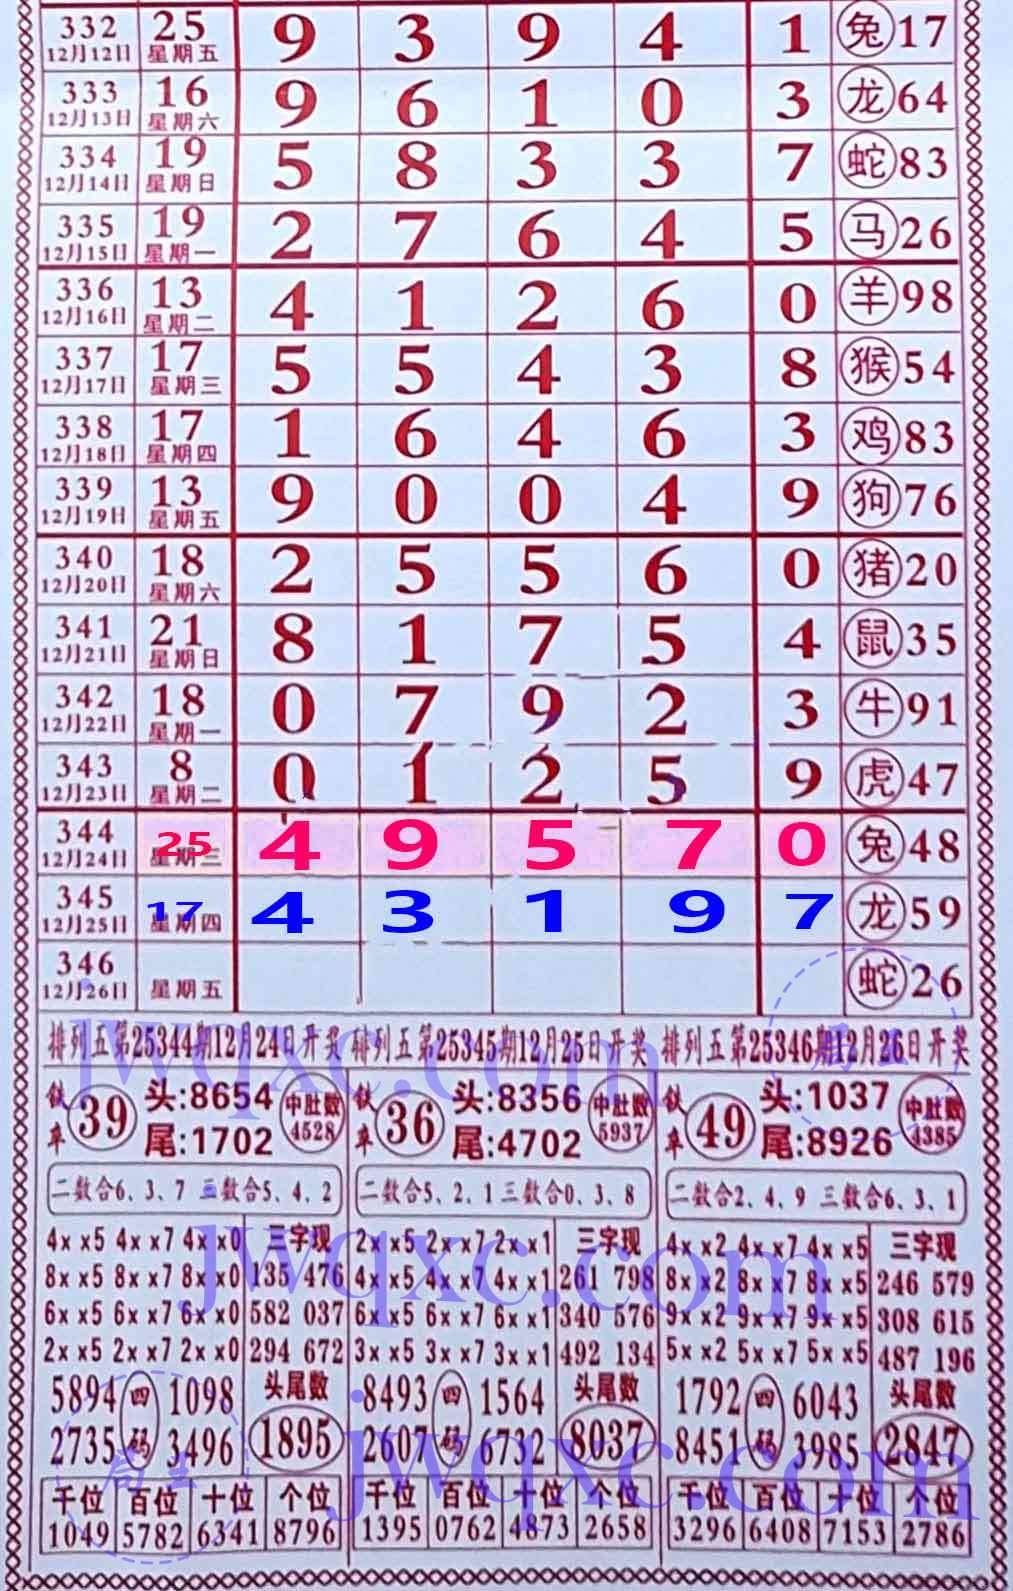 332 25 9 3 9 4 1 兔 17
12月12日 星期五
333 16 9 6 1 0 3 龙 64
12月13日 星期六
334 19 5 8 3 3 7 蛇 83
12月14日 星期日
335 19 2 7 6 4 5 马 26
12月15日 星期一
336 13 4 1 2 6 0 羊 98
12月16日 星期二
337 17 5 5 4 3 8 猴 54
12月17日 星期三
338 17 1 6 4 6 3 鸡 83
12月18日 星期四
339 13 9 0 0 4 9 狗 76
12月19日 星期五
340 18 2 5 5 6 0 猪 20
12月20日 星期六
341 21 8 1 7 5 4 鼠 35
12月21日 星期日
342 18 0 7 9 2 3 牛 91
12月22日 星期一
343 8 0 1 2 5 9 虎 47
12月23日 星期二
344 25 4 9 5 7 0 兔 48
12月24日 星期三
345 17 4 3 1 9 7 龙 59
12月25日 星期四
346 蛇 26
12月26日 星期五
排列五第25344期12月24日开奖 排列五第25345期12月25日开奖 排列五第25346期12月26日开奖
铁卒 39 头:8654 中肚数 铁卒 36 头:8356 中肚数 铁卒 49 头:1037 中肚数
尾:1702 4528 尾:4702 5937 尾:8926 4385
二数合6、3、7 三数合5、4、2 二数合5、2、1 三数合0、3、8 二数合2、4、9 三数合6、3、1
4x x5 4x x7 4x x0 三字现 2x x5 2x x7 2x x1 三字现 4x x2 4x x7 4x x5 三字现
8x x5 8x x7 8x x0 135 476 4x x5 4x x7 4x x1 261 798 8x x2 8x x7 8x x5 246 579
6x x5 6x x7 6x x0 582 037 6x x5 6x x7 6x x1 340 576 9x x2 9x x7 9x x5 308 615
2x x5 2x x7 2x x0 294 672 3x x5 3x x7 3x x1 492 134 5x x2 5x x7 5x x5 487 196
5894 四码 1098 头尾数 8493 四码 1564 头尾数 1792 四码 6043 头尾数
2735 3496 1895 2607 6732 8037 8451 3985 2847
千位 百位 十位 个位 千位 百位 十位 个位 千位 百位 十位 个位
1049 5782 6341 8796 1395 0762 4873 2658 3296 6408 7153 2786
jwqxc.com
jwqxc.com
jwqxc.com